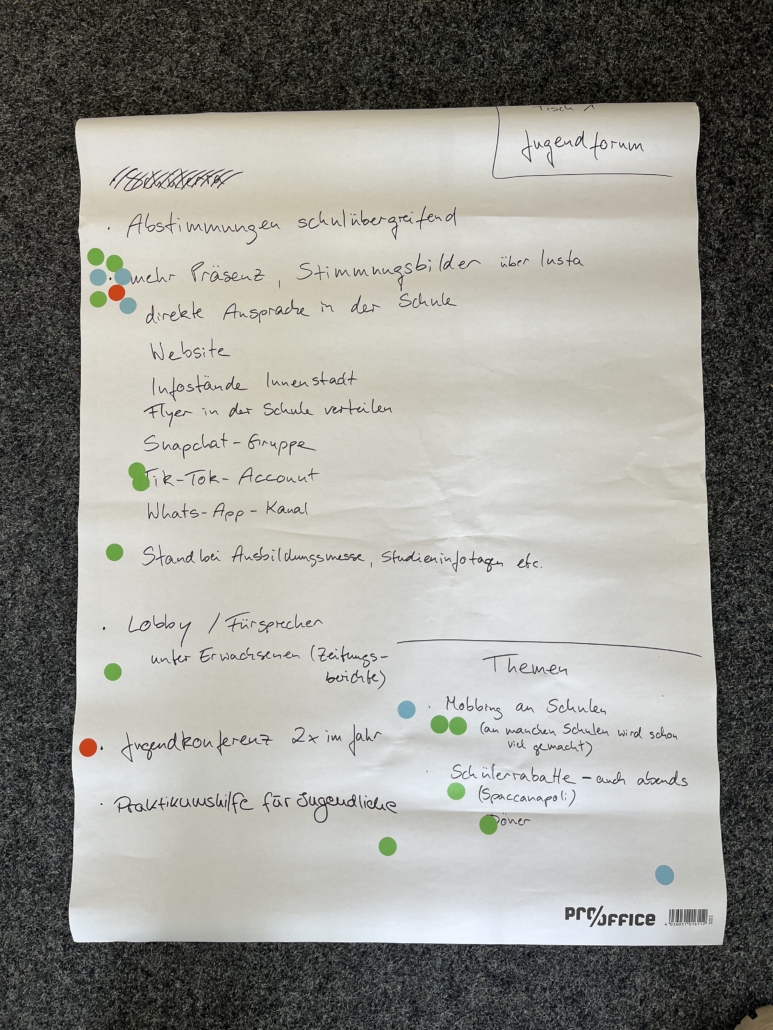 Tisch 1
Jugendforum
· Abstimmungen schulübergreifend
· mehr Präsenz, Stimmungsbilder über Insta
direkte Ansprache in der Schule
Website
Infostände Innenstadt
Flyer in der Schule verteilen
Snapchat-Gruppe
Tik-Tok-Account
Whats-App-Kanal
Stand bei Ausbildungsmesse, Studieninfotagen etc.
· Lobby / Fürsprecher
unter Erwachsenen (Zeitungs-
berichte)
· Jugendkonferenz 2x im Jahr
· Praktikumshilfe für Jugendliche
Themen
· Mobbing an Schulen
(an manchen Schulen wird schon
viel gemacht)
· Schülerrabatte – auch abends
(Spaccanapoli)
Döner
PRO/OFFICE